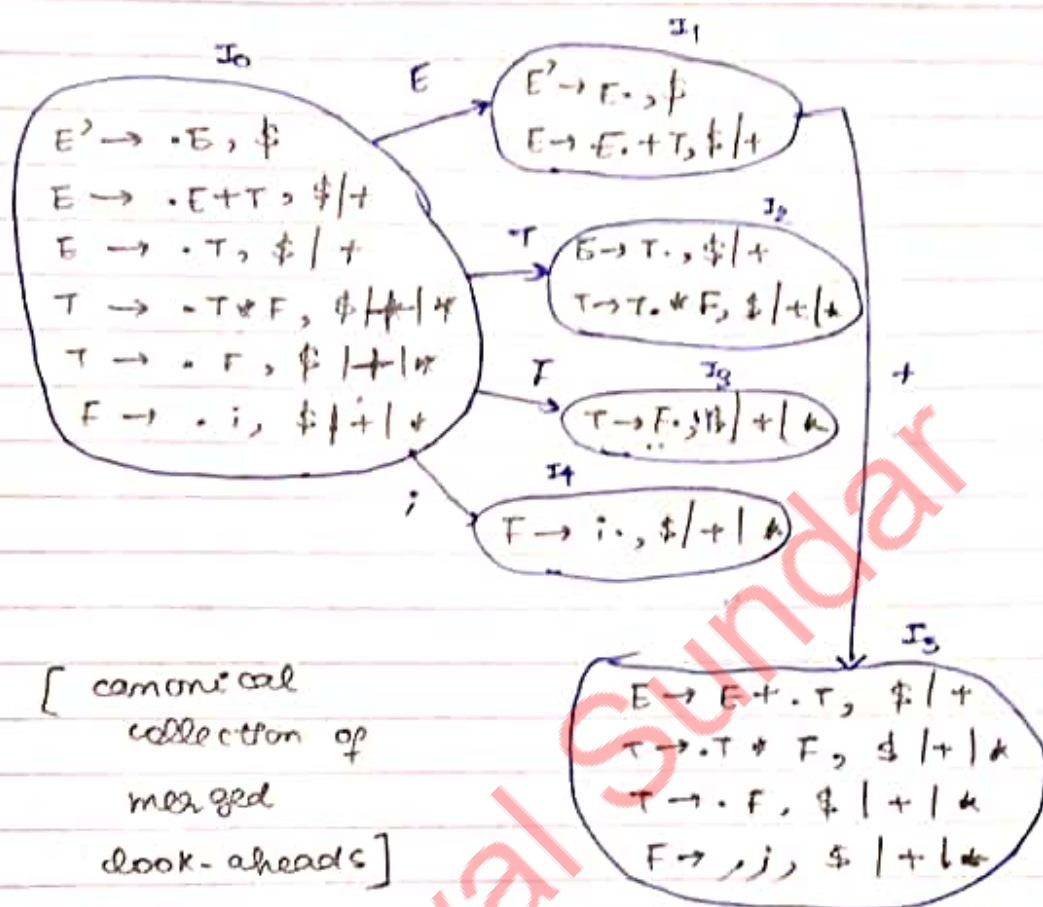 I0
E' → .E, $
E → .E+T, $|+
E → .T, $ | +
T → .T*F, $|+|*
T → . F, $ |+|*
F → . i, $|+|*
E
I1
E' → E., $
E → E.+T, $|+
T
I2
E → T., $|+
T → T.*F, $|+|*
F
I3
T → F., $|+|*
i
I4
F → i., $|+|*
+
I5
E → E+.T, $|+
T → .T * F, $|+|*
T → . F, $ | + | *
F → .i, $ | + | *
[ canonical
collection of
merged
look-aheads]
val Sundar